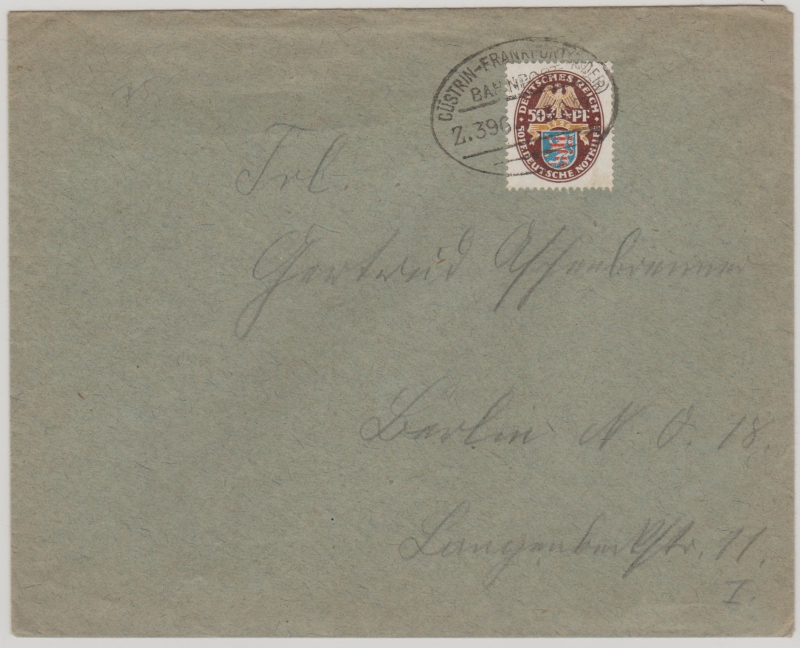 CÜSTRIN-FRANKFURT (ODER)
BAHNPOST
Z.396
DEUTSCHES REICH
50 PF
DEUTSCHE NOTHILFE
Frl.
Gertrud Aschenbrenner
Berlin N. O. 18.
Langenbeckstr. 11.
I.